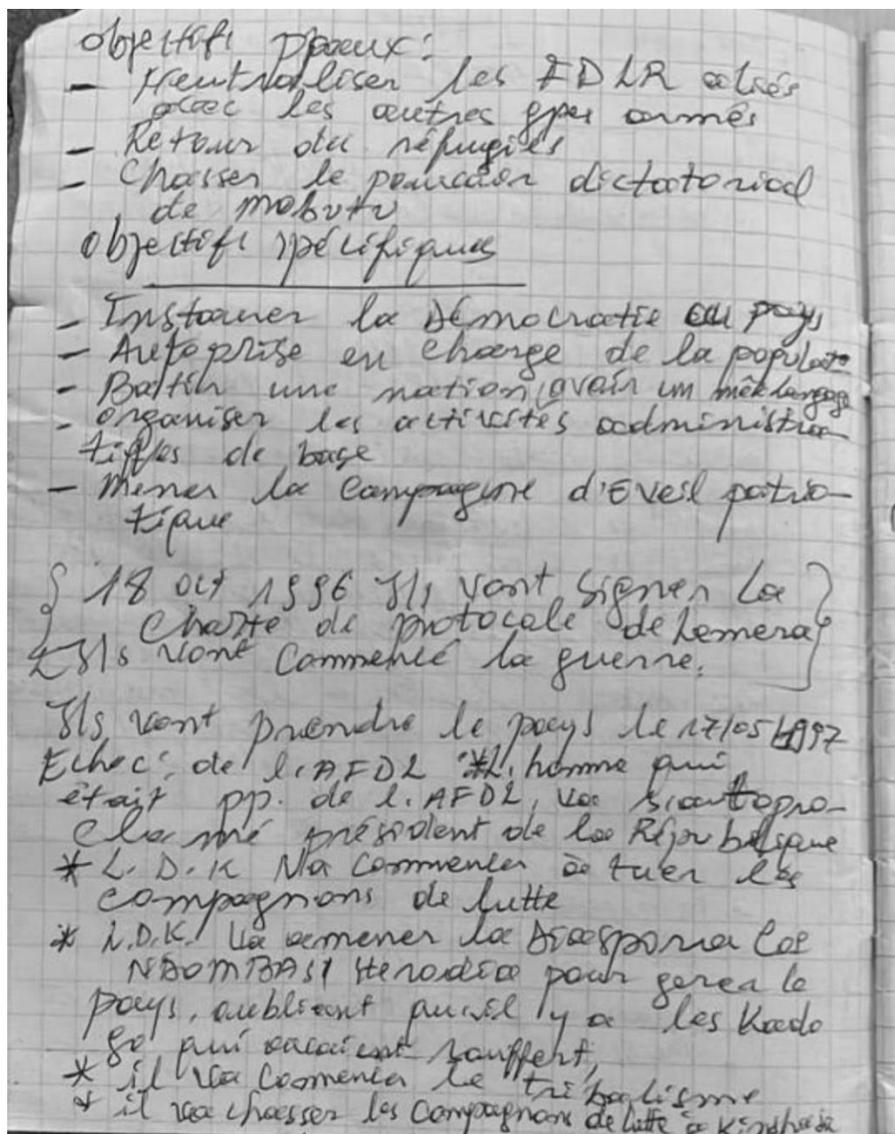 Objectifs ppaux:
- Neutraliser les FDLR aliés
avec les autres gpes armés
- Retour des réfugiés
- Chasser le pouvoir dictatorial
de mobutu
Objectifs spécifiques
- Instaurer la Démocratie au pays
- Auto prise en charge de la populat°
- Batir une nation, avoir un mêm langage
- organiser les activités administra-
tives de base
- Mener la Campagne d'Eveil patrio-
tique
{ 18 oct 1996 Ils vont signer la }
Charte de protocole de Lemera
Ils vont commencé la guerre.
Ils vont prendre le pays le 17/05/1997
Echec de l'AFDL * L'homme qui
était pp. de l'AFDL, va s'autopro-
clamé président de la République
* L.D.K Va commencer à tuer les
compagnons de lutte
* L.D.K. Va amener la Diaspora
pour gerer le
pays, oubliant qu'il y a les Kado
go qui avaient souffert,
* il va commencer le tribalisme
* il va chasser les compagnons de lutte à Kinshasa